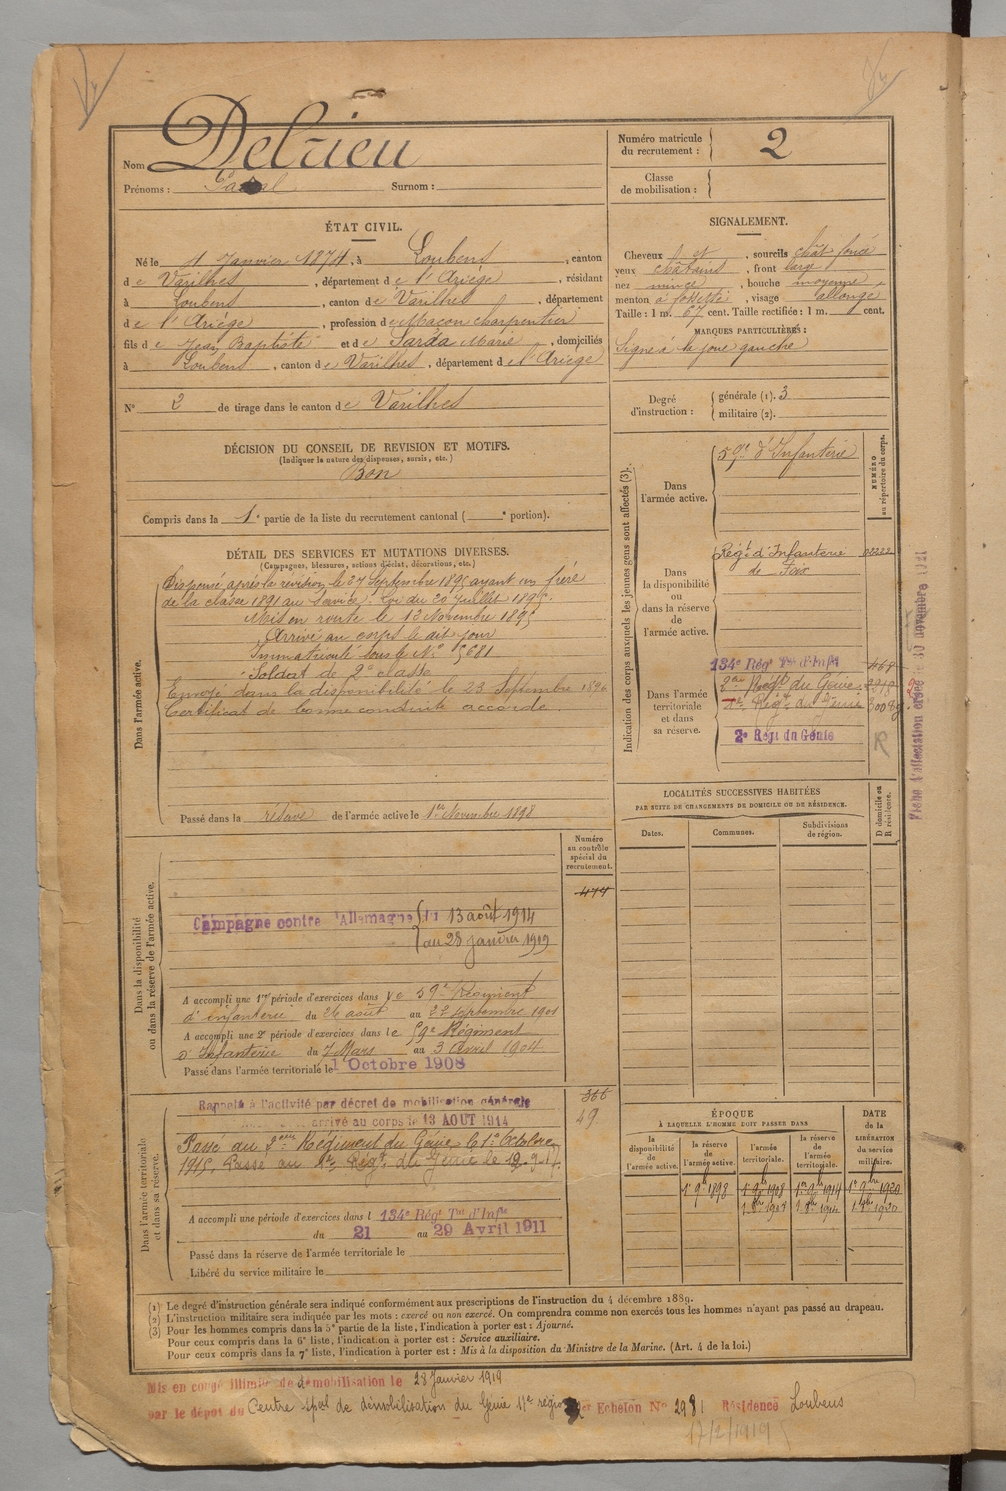 Nom Delrieu
Prénoms : Surnom :
Numéro matricule du recrutement : 2
Classe de mobilisation :
ÉTAT CIVIL.
Né le 1 Janvier 1874, à Loubens, canton
de Varilhes, département de l'Ariège, résidant
à Loubens, canton de Varilhes, département
de l'Ariège, profession de Maçon charpentier
fils de Jean Baptiste et de Sarda Marie, domiciliés
à Loubens, canton de Varilhes, département de l'Ariège
N° 2 de tirage dans le canton de Varilhes
DÉCISION DU CONSEIL DE REVISION ET MOTIFS.
(Indiquer la nature des dispenses, sursis, etc.)
Bon
Compris dans la 1e partie de la liste du recrutement cantonal ( e portion).
SIGNALEMENT.
Cheveux , sourcils chât foncé
yeux châtains, front large
nez mince, bouche moyenne
menton à fossette, visage allongé
Taille : 1 m. 67 cent. Taille rectifiée : 1 m. cent.
MARQUES PARTICULIÈRES :
Signe à la joue gauche
Degré d'instruction : générale (1). 3
militaire (2).
DÉTAIL DES SERVICES ET MUTATIONS DIVERSES.
(Campagnes, blessures, actions d'éclat, décorations, etc.)
Dans l'armée active.
Dispensé après la revision le 27 Septembre 1895 ayant un frère
de la classe 1891 au service. Loi du 20 Juillet 1895.
Mis en route le 13 Novembre 1895
Arrivé au corps le dit jour
Immatriculé sous le N° 5681
Soldat de 2e classe
Envoyé dans la disponibilité le 23 Septembre 1896
Certificat de bonne conduite accordé.
Passé dans la réserve de l'armée active le 1er Novembre 1898
Indication des corps auxquels les jeunes gens sont affectés (3).
NUMÉRO au répertoire du corps.
Dans l'armée active.
59e d'Infanterie
Dans la disponibilité ou dans la réserve de l'armée active.
Régt d'Infanterie 02222
de Foix
Dans l'armée territoriale et dans sa réserve.
134e Régt Tal d'Infie 468
2me Régt du Génie
1er Régt du Génie
2e Régt du Génie
R
Fiche d'affectation créée le 30 novembre 1921
LOCALITÉS SUCCESSIVES HABITÉES
PAR SUITE DE CHANGEMENTS DE DOMICILE OU DE RÉSIDENCE.
Dates. Communes. Subdivisions de région. D domicile ou R résidence.
Numéro au contrôle spécial du recrutement.
Dans la disponibilité ou dans la réserve de l'armée active.
Campagne contre l'Allemagne du 13 août 1914
au 28 janvier 1919
A accompli une 1re période d'exercices dans le 59e Régiment
d'infanterie du 26 août au 22 septembre 1901
A accompli une 2e période d'exercices dans le 59e Régiment
d'Infanterie du 7 Mars au 3 Avril 1904.
Passé dans l'armée territoriale le 1 Octobre 1908
Dans l'armée territoriale et dans sa réserve.
Rappelé à l'activité par décret de mobilisation générale
arrivé au corps le 13 AOUT 1914
366
49
Passé au 2eme Régiment du Génie le 1er Octobre
1915, Passé au 1er Régt du Génie le
A accompli une période d'exercices dans l 134e Régt Tal d'Infie
du 21 au 29 Avril 1911
Passé dans la réserve de l'armée territoriale le
Libéré du service militaire le
ÉPOQUE
À LAQUELLE L'HOMME DOIT PASSER DANS
DATE de la LIBÉRATION du service militaire.
la disponibilité de l'armée active. la réserve de l'armée active. l'armée territoriale. la réserve de l'armée territoriale.
1er 9bre 1898 1er 9bre 1908 1er 9bre 1914 1er 9bre 1920
(1) Le degré d'instruction générale sera indiqué conformément aux prescriptions de l'instruction du 4 décembre 1889.
(2) L'instruction militaire sera indiquée par les mots : exercé ou non exercé. On comprendra comme non exercés tous les hommes n'ayant pas passé au drapeau.
(3) Pour les hommes compris dans la 5e partie de la liste, l'indication à porter est : Ajourné.
Pour ceux compris dans la 6e liste, l'indication à porter est : Service auxiliaire.
Pour ceux compris dans la 7e liste, l'indication à porter est : Mis à la disposition du Ministre de la Marine. (Art. 4 de la loi.)
Mis en congé illimité de démobilisation le 28 Janvier 1919
par le dépôt du Centre spal de démobilisation du Génie 17e région Echelon N° 2981 Résidence Loubens
17/2/1919